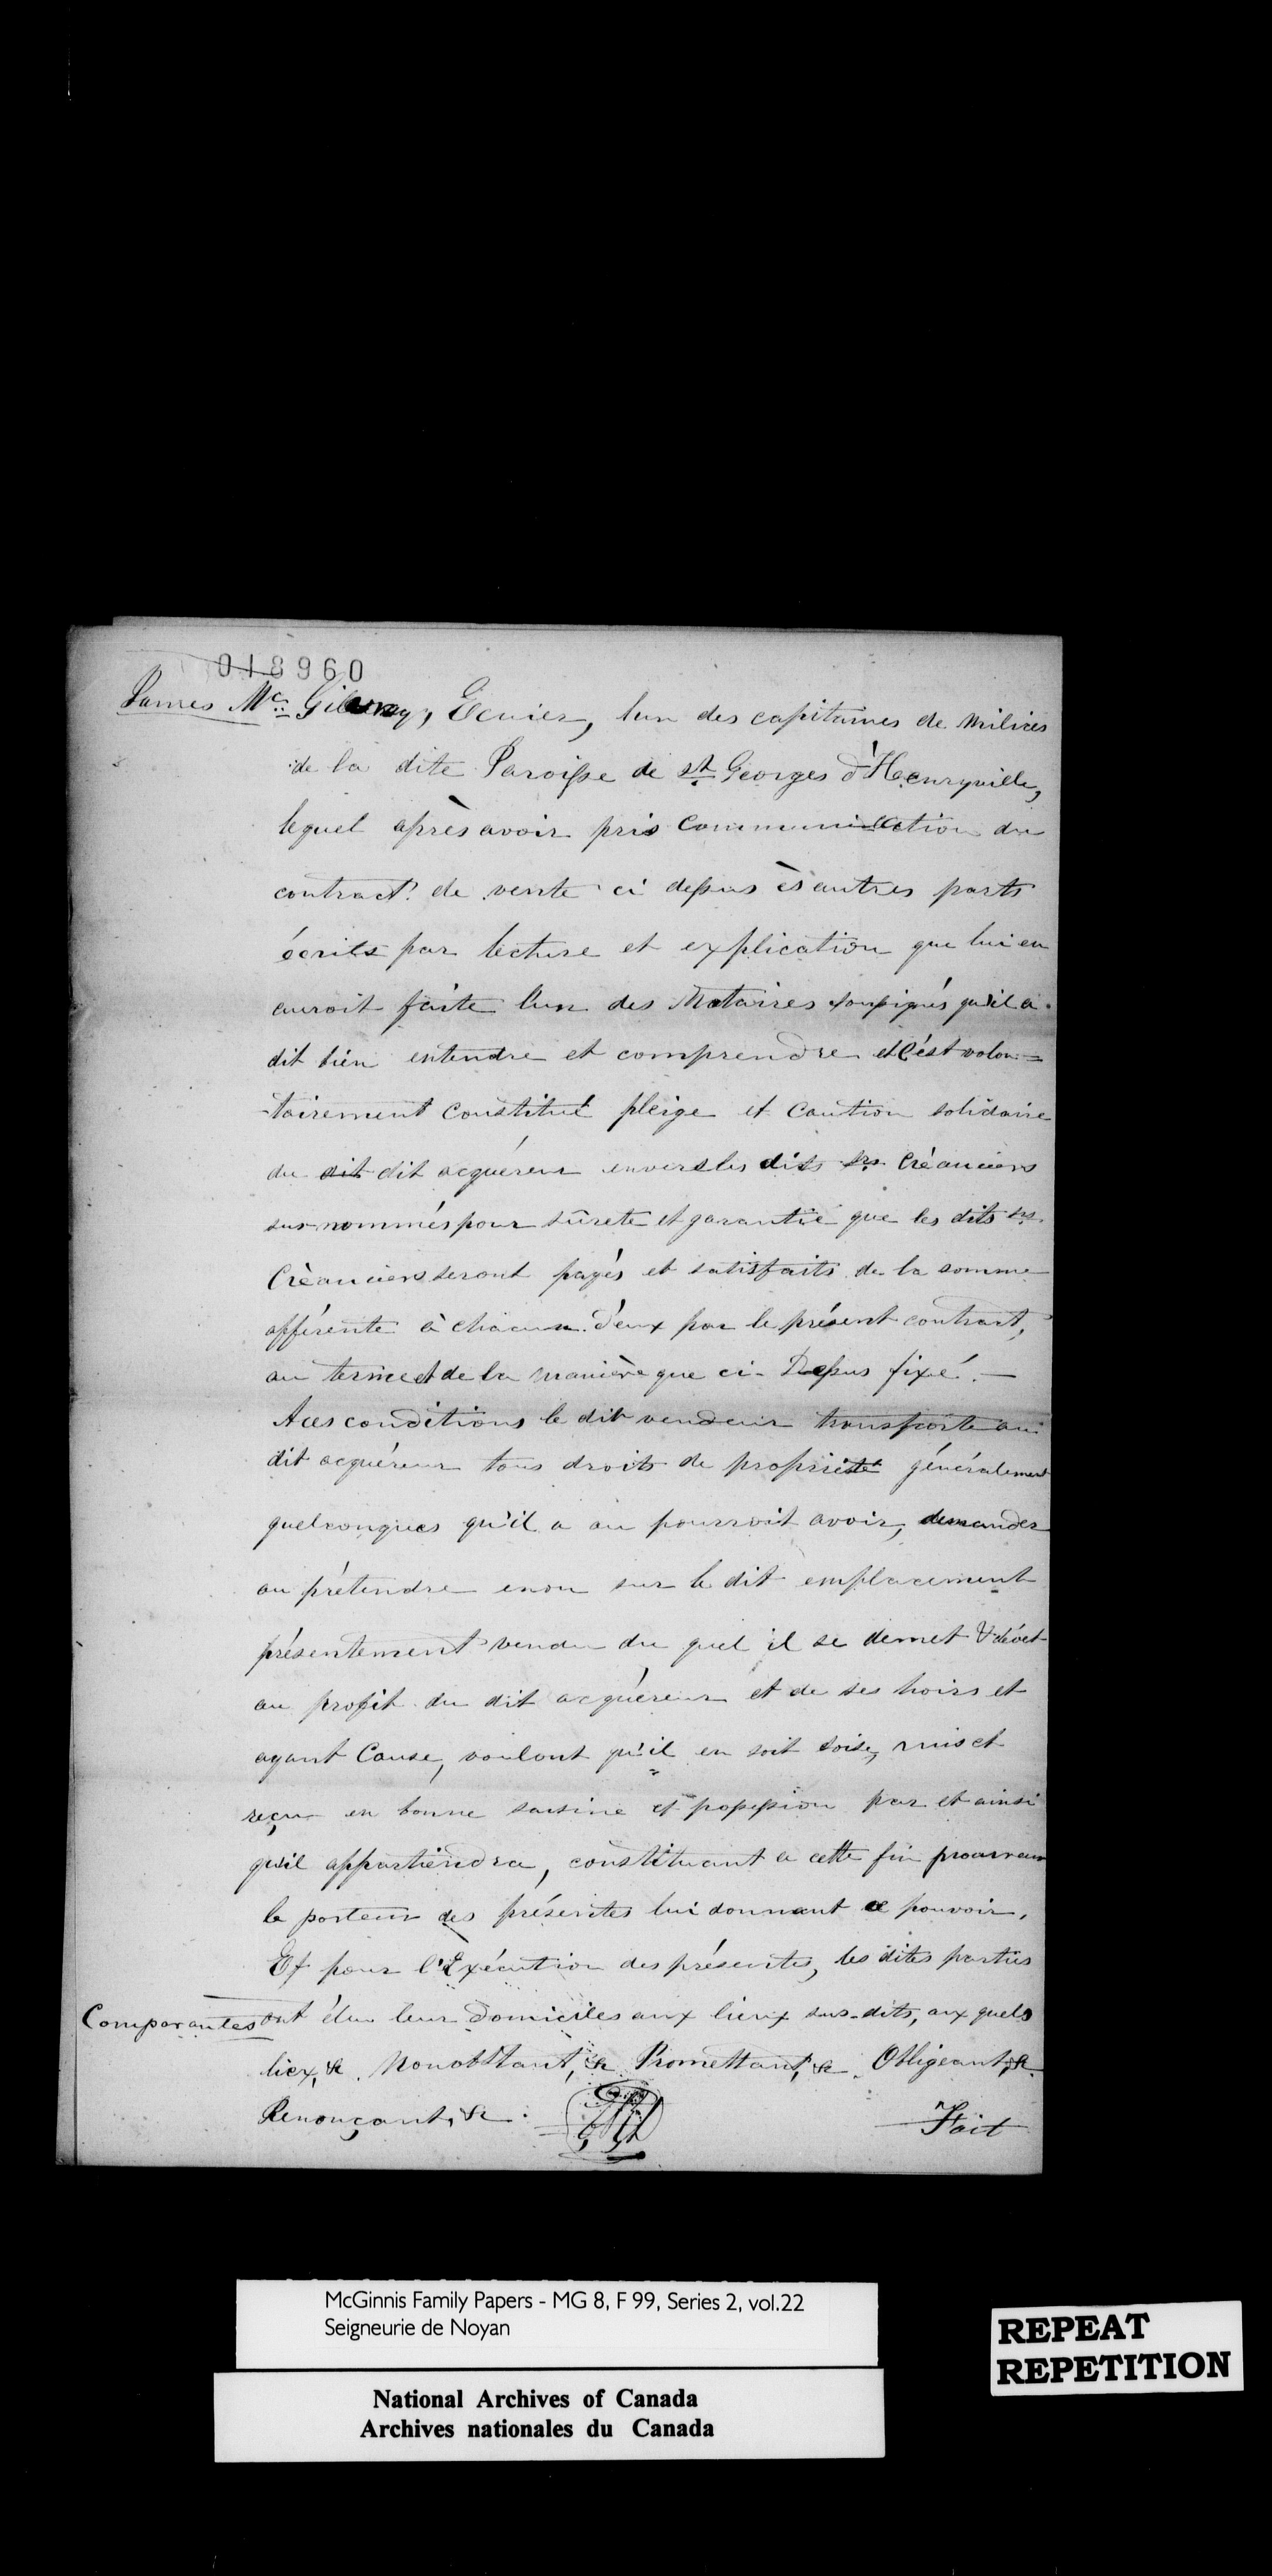 018960
James Mc. Gillvray, Ecuier, l'un des capitaines de milices
de la dite Paroisse de st. Georges d'Henryville,
lequel après avoir pris communication du
contract de vente ci dessus ès autres parts
écrits par lecture et explication que lui en
auroit faite l'un des Notaires soussignés qu'il a
dit bien entendre et comprendre et c'est volon=
-tairement constitué pleige et caution solidaire
du dit dit acquéreur envers les dits srs. Créanciers
sus-nommés pour sûrete et garantie que les dits srs.
Créanciers seront payés et satisfaits de la somme
afférente à chacun d'eux par le présent contract,
au terme et de la manière que ci-Dessus fixé. —
A ces conditions le dit vendeur transporte au
dit acquéreur tous droits de propriété généralement
quelconques qu'il a ou pourroit avoir, demander
ou prétendre en ou sur le dit emplacement
présentement vendu du quel il se demet & dévet
au profit du dit acquéreur et de ses hoirs et
ayant Cause, voulant qu'il en soit soisi, mis et
reçu en bonne saisine et possession par et ainsi
qu'il appartiendra, constituant a cette fin procureur
le porteur des présentes lui donnant ce pouvoir.
Et pour l'Exécution des présentes, les dites parties
Comparantes ont élu leur Domiciles aux lieux sus-dits, aux quels
liex, &. Nonobstant, & Promettant, & Obligeant, &.
Renonçant, &.
Fait
McGinnis Family Papers - MG 8, F 99, Series 2, vol.22
Seigneurie de Noyan
National Archives of Canada
Archives nationales du Canada
REPEAT
REPETITION